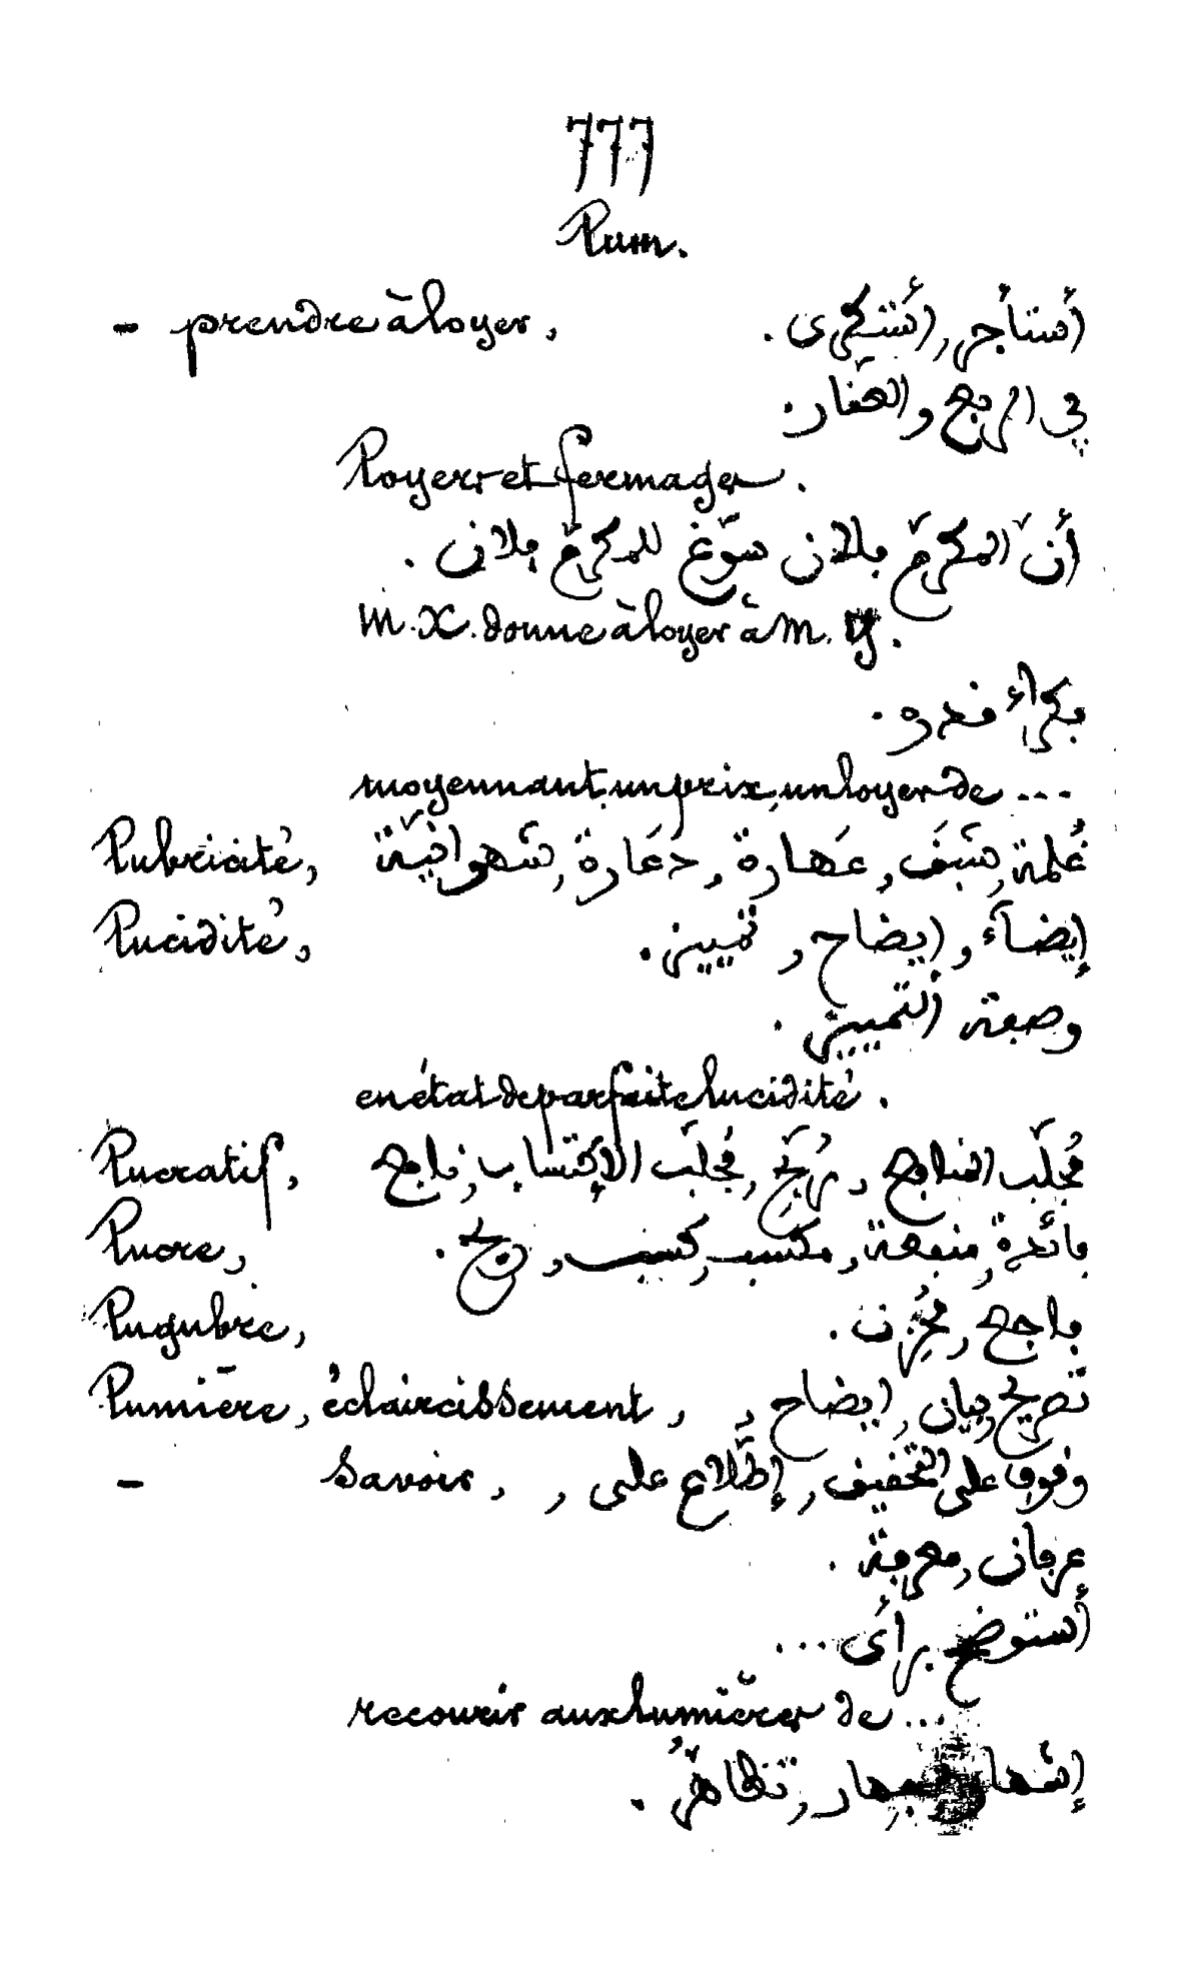 777
Lum.
- prendre à loyer, أستأجر, أستكرى.
في الربع والعقار.
Loyers et fermages.
أنّ المكرّم بلان سوّغ للمكرّم بلان.
M. X. donne à loyer à M. Y.
بكراء قدره.
moyennant un prix, un loyer de ...
Lubricité, غُلمة, شَبَق, عَهارة, دَعَارة, شهوانيّة
Lucidité, إيضآء, إيضاح, تمييز.
وصفة التمييز.
en état de parfaite lucidité.
Lucratif, مُجلَب المنافع, مُربِح, مُجلَب الإكتساب, نافع
Lucre, فائدة, منفعة, مكسب, كسب, ربح.
Lugubre, فاجع, مُحزن.
Lumière, éclaircissement, تصريح, بيان, إيضاح,
- savoir, وقوف على التحقيق, إطّلاع على,
عرفان, معرفة.
أستوضح برأى...
recourir aux lumières de ...
تظاهُر.